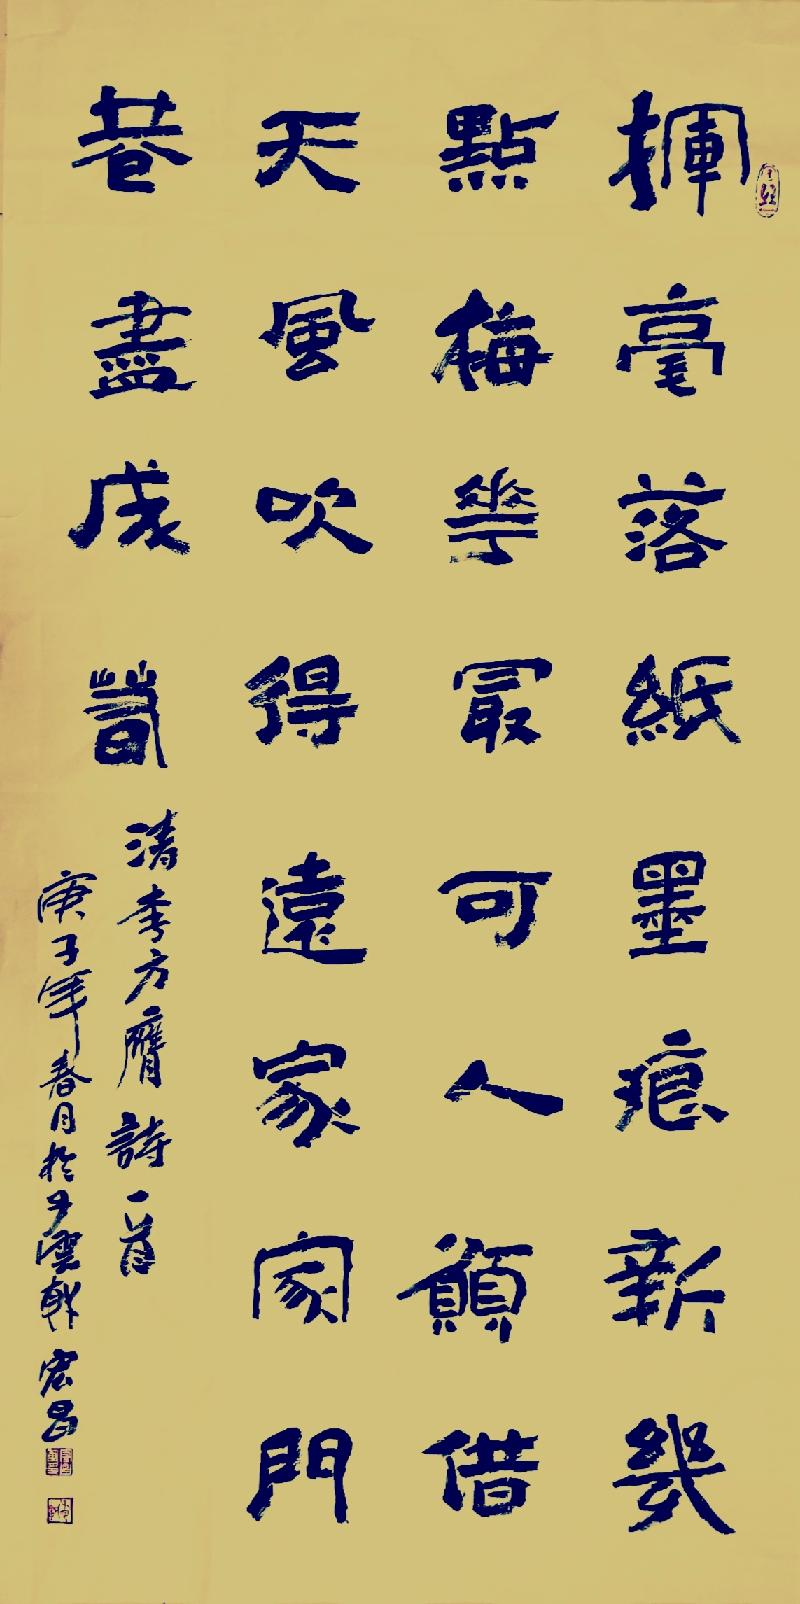 揮毫落紙墨痕新幾
點梅花最可人願借
天風吹得遠家家門
巷盡成春
清李方膺詩一首
庚子年春月於子雲軒宏昌